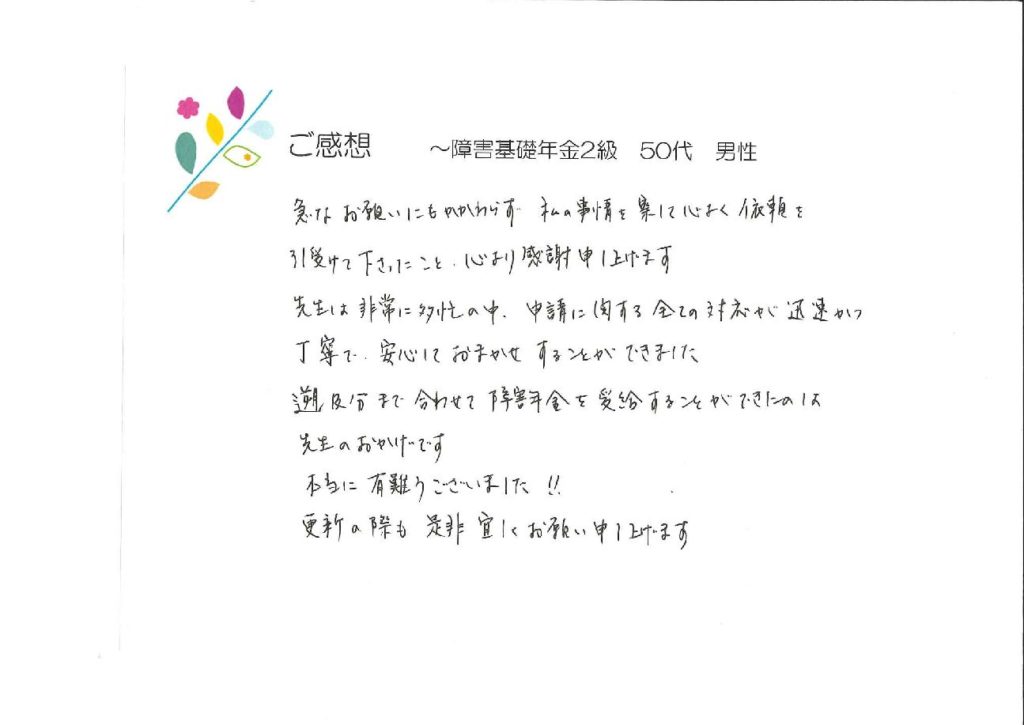 ご感想　～障害基礎年金2級　50代　男性
急なお願いにもかかわらず 私の事情を案じて心よく依頼を
引受けて下さったこと、心より感謝申し上げます
先生は非常に多忙の中、申請に関する全ての対応が迅速かつ
丁寧で、安心しておまかせすることができました
遡及分まで合わせて障害年金を受給することができたのは
先生のおかげです
本当に有難うございました!!
更新の際も是非宜しくお願い申し上げます